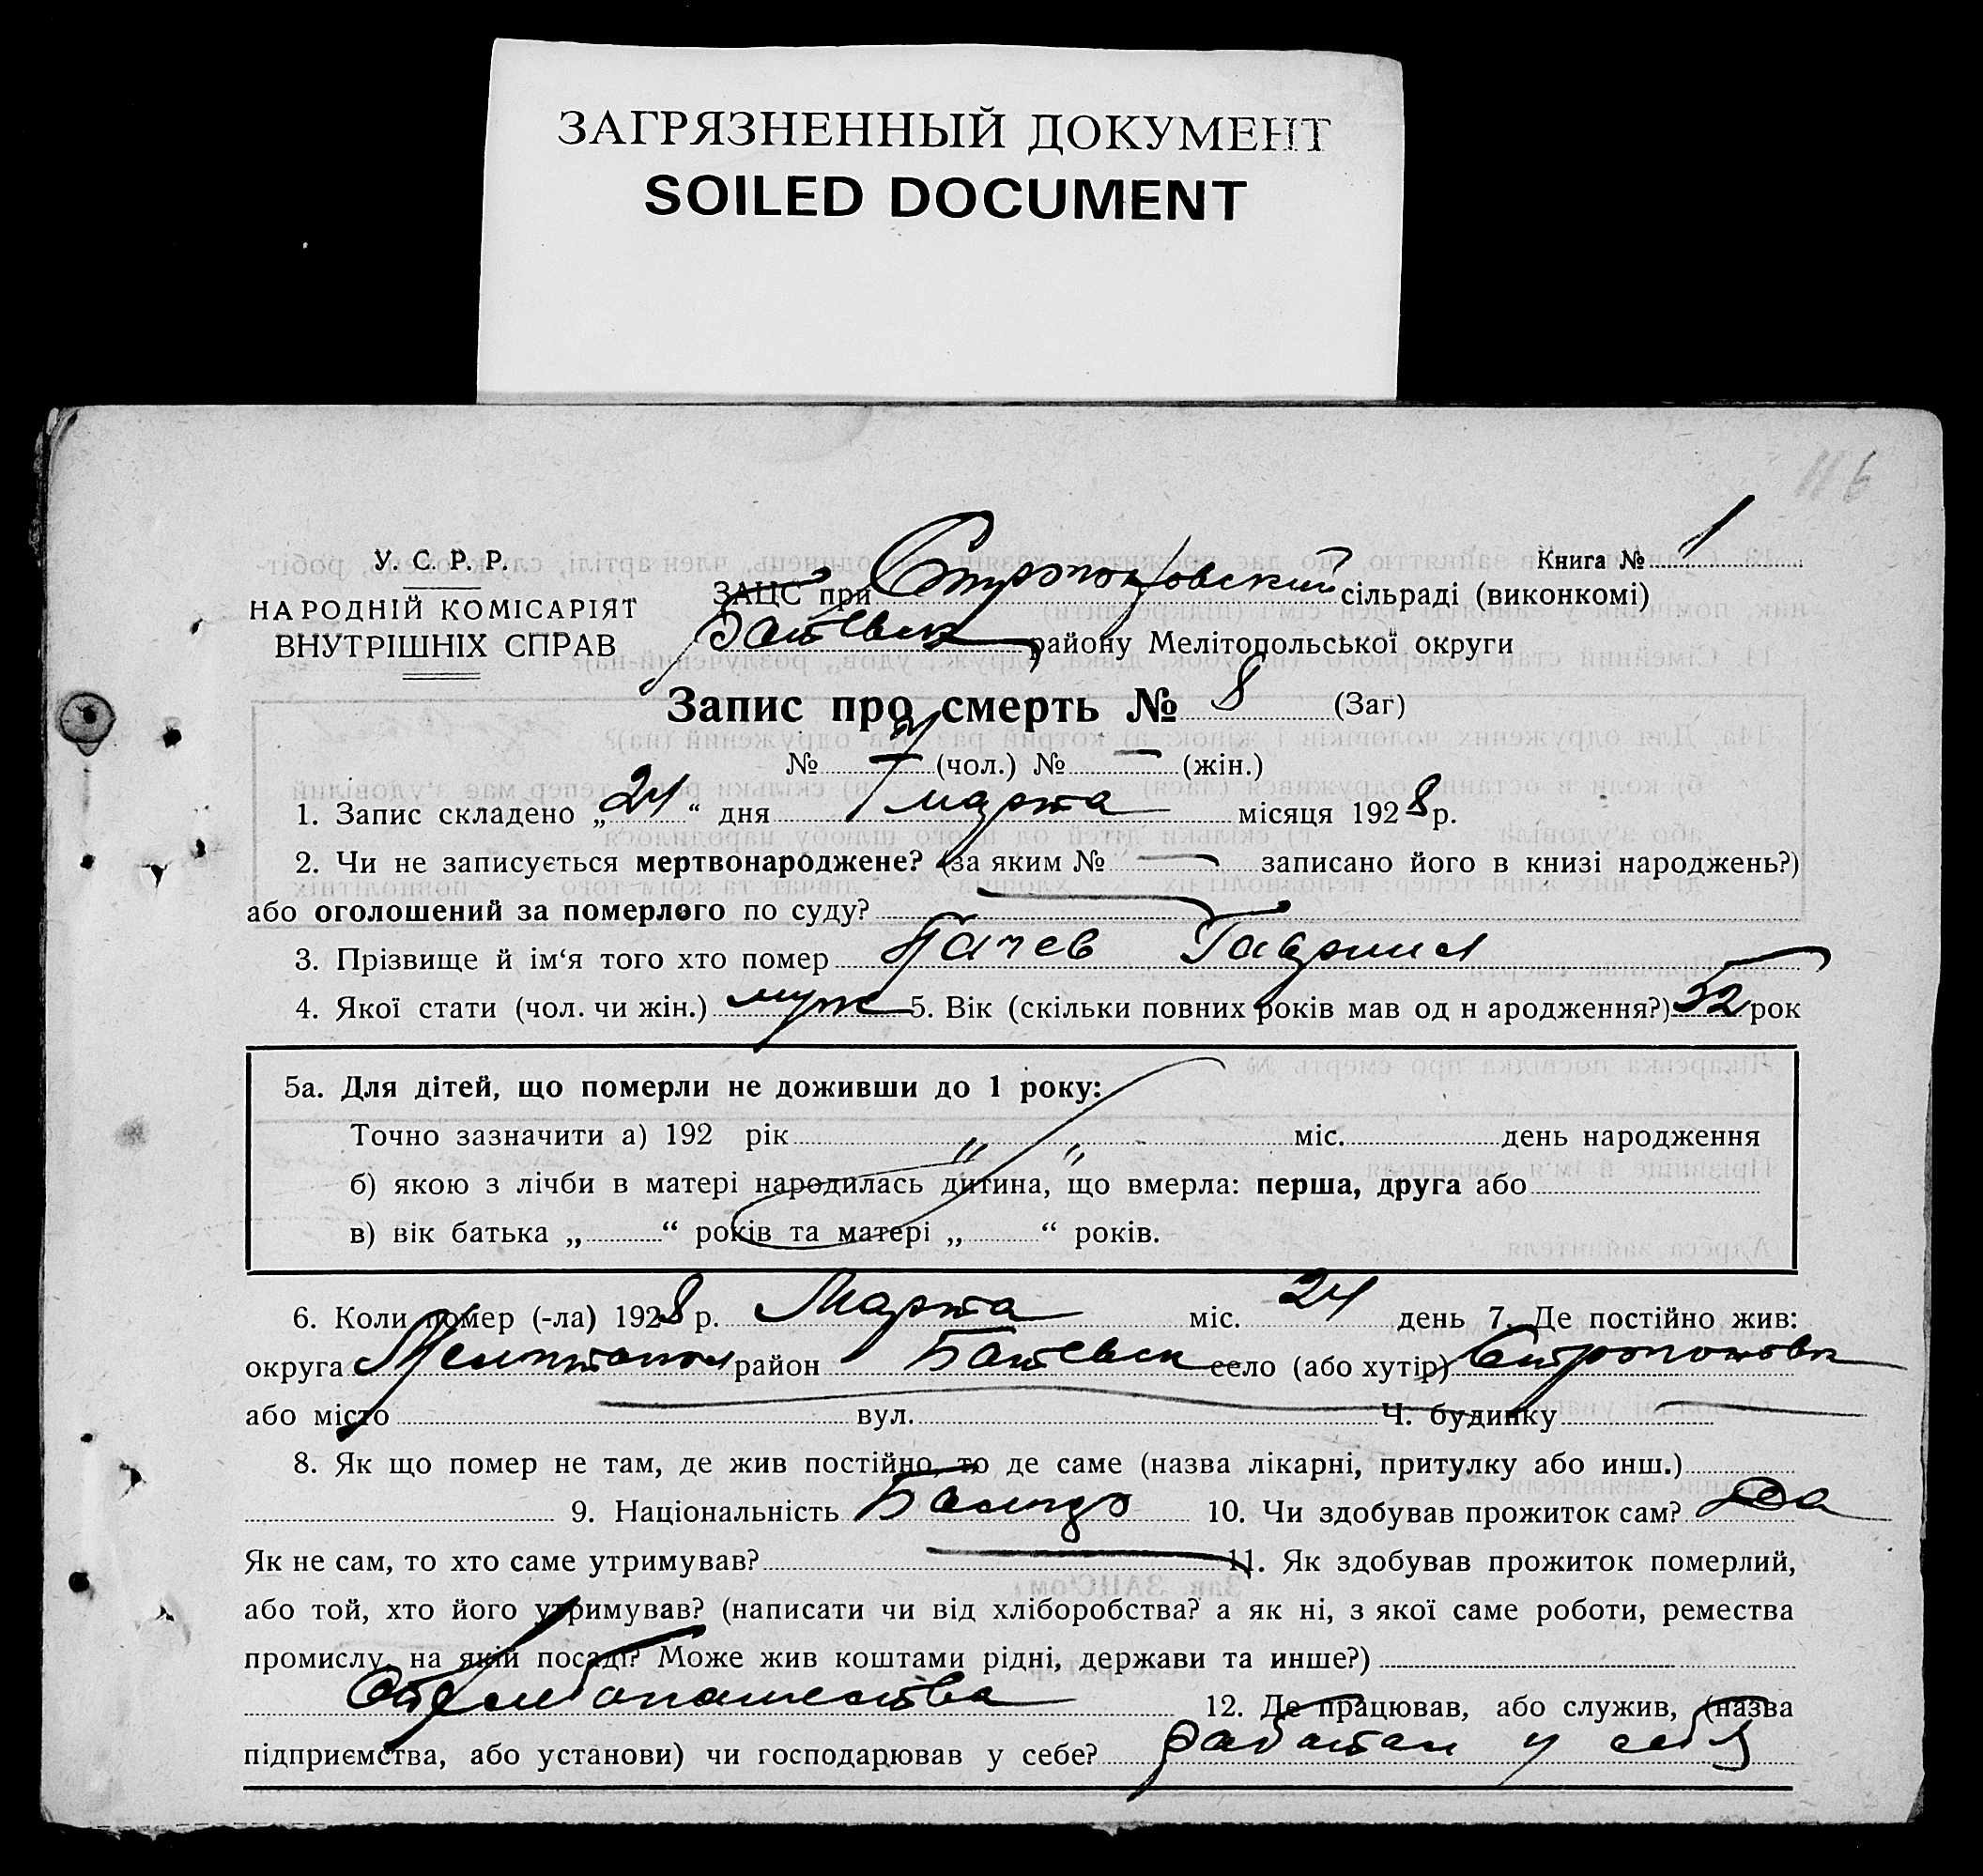 ЗАГРЯЗНЕННЫЙ ДОКУМЕНТ
SOILED DOCUMENT
116
У. С. Р. Р.
НАРОДНІЙ КОМІСАРІЯТ
ВНУТРІШНІХ СПРАВ
Книга № 1
ЗАЦС при сільраді (виконкомі)
району Мелітопольської округи
Запис про смерть № 8 (Заг)
№ (чол.) № — (жін.)
1. Запис складено „24“ дня марта місяця 1928 р.
2. Чи не записується мертвонароджене? (за яким № — записано його в книзі народжень?)
або оголошений за померлого по суду? —
3. Прізвище й ім‘я того хто помер Гавриил
4. Якої стати (чол. чи жін.) муж 5. Вік (скільки повних років мав од н ародження?) 52 рок
5а. Для дітей, що померли не доживши до 1 року:
Точно зазначити а) 192 рік „ „ міс. день народження
б) якою з лічби в матері народилась дитина, що вмерла: перша, друга або
в) вік батька „ “ років та матері „ “ років.
6. Коли помер (-ла) 1928 р. Марта міс. 24 день 7. Де постійно жив:
округа Мелитопол район село (або хутір)
або місто вул. Ч. будинку
8. Як що помер не там, де жив постійно, то де саме (назва лікарні, притулку або инш.)
9. Національність 10. Чи здобував прожиток сам? Да
Як не сам, то хто саме утримував? — 11. Як здобував прожиток померлий,
або той, хто його утримував? (написати чи від хліборобства? а як ні, з якої саме роботи, ремества
промислу, на якій посаді? Може жив коштами рідні, держави та инше?)
От хлебопашества 12. Де працював, або служив, (назва
підприємства, або установи) чи господарював у себе? работал у себя